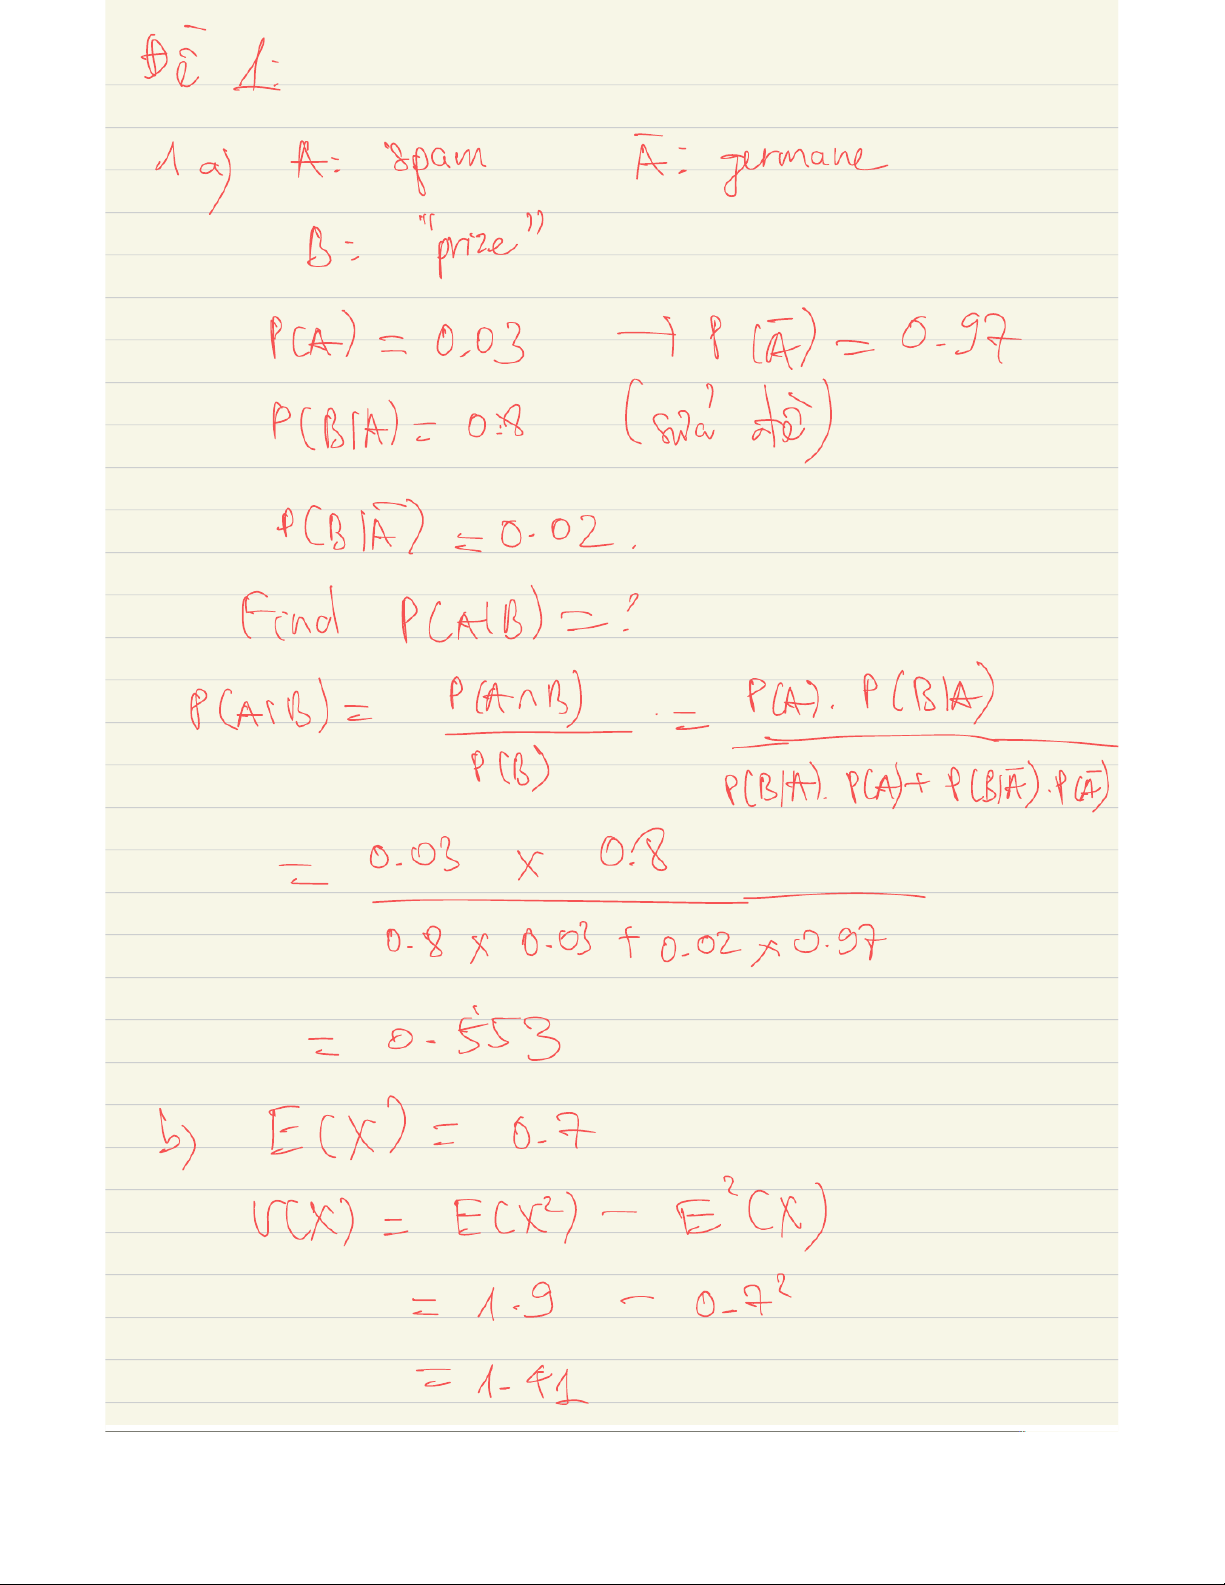 Đề 1:
1 a) A: spam Ā: germane
B: "prize"
P(A) = 0.03 → P(Ā) = 0.97
P(B|A) = 0.8 (sửa đề)
P(B|Ā) = 0.02.
Find P(A|B) = ?
P(A|B) = P(A∩B) / P(B) = P(A). P(B|A) / P(B|A). P(A) + P(B|Ā). P(Ā)
= 0.03 x 0.8 / 0.8 x 0.03 + 0.02 x 0.97
= 0.553
b) E(X) = 0.7
V(X) = E(X²) - E²(X)
= 1.9 - 0.7²
= 1.41